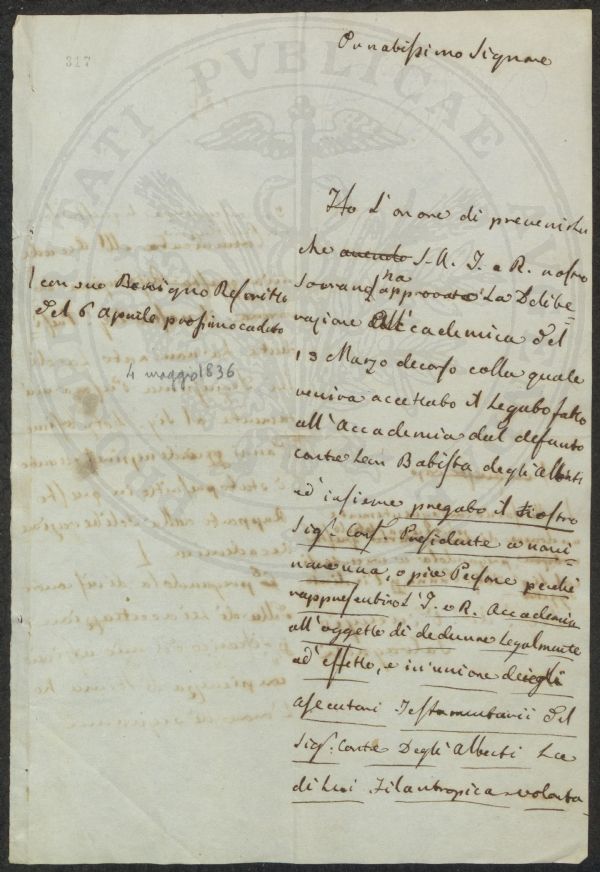 317
Onorabissimo Signore
Ho L'onore di prevenirla
che avendo S. A. I. e R. nostro
Sovrano ha approvato La Delibe=
razione Accademica del
13 Marzo decorso colla quale
veniva accettato il Legato fatto
all'Accademia dal defunto
Conte Leon Batista degli Alberti
ed insieme pregato il nostro
Sig. Cons. Presidente a nomi=
nare una, o più Persone perchè
rappresentino L'I. e R. Accademia
all'oggetto di dedurre Legalmente
ad'effetto, e in'unione degli
Esecutori Testamentarii del
Sig. Conte Degli Alberti La
di Lui Filantropica volontà
( con suo Benigno Rescritto
del 6 Aprile prossimo caduto
4 maggio 1836
PVBLICAE